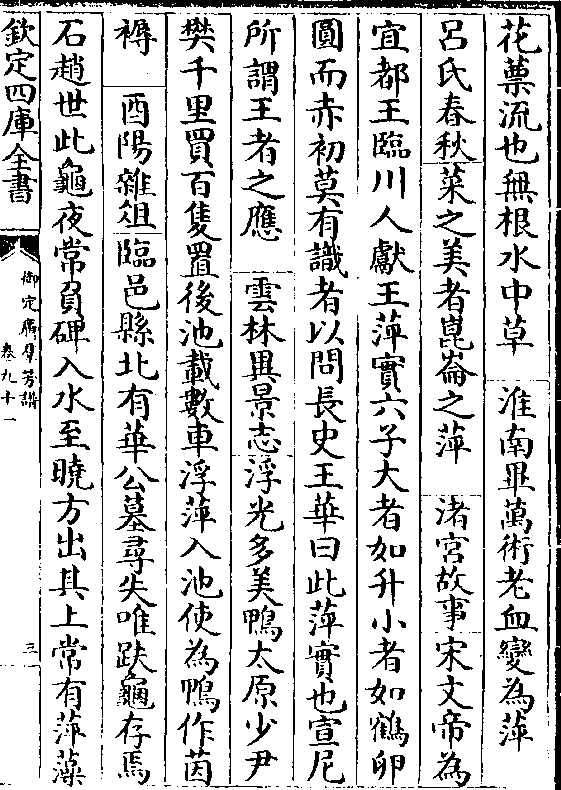 花蘂流也無根水中草　淮南畢萬術老血變為萍
呂氏春秋菜之美者崑崙之萍　渚宮故事宋文帝為
宜都王臨川人獻王萍實六子大者如升小者如鶴卵
圓而赤初莫有識者以問長史王華曰此萍實也宣尼
所謂王者之應　雲林異景志浮光多美鴨太原少尹
樊千里買百隻置後池載數車浮萍入池使為鴨作茵
褥　酉陽雜俎臨邑縣北有華公墓尋失唯趺龜存焉
石趙世此龜夜常負碑入水至曉方出其上常有萍藻
欽定四庫全書
御定廣羣芳譜
卷九十一
三